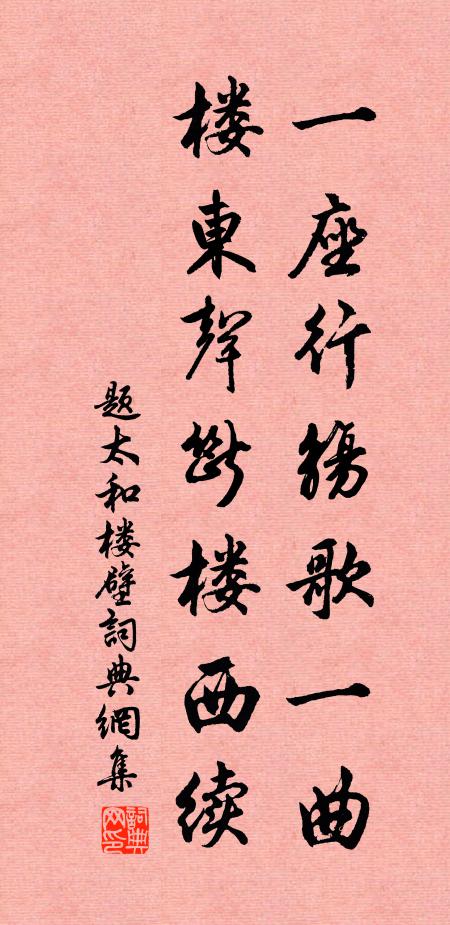 一座行觞歌一曲
楼東聲斷楼西续
题太和楼壁詞典網集
詞典网印